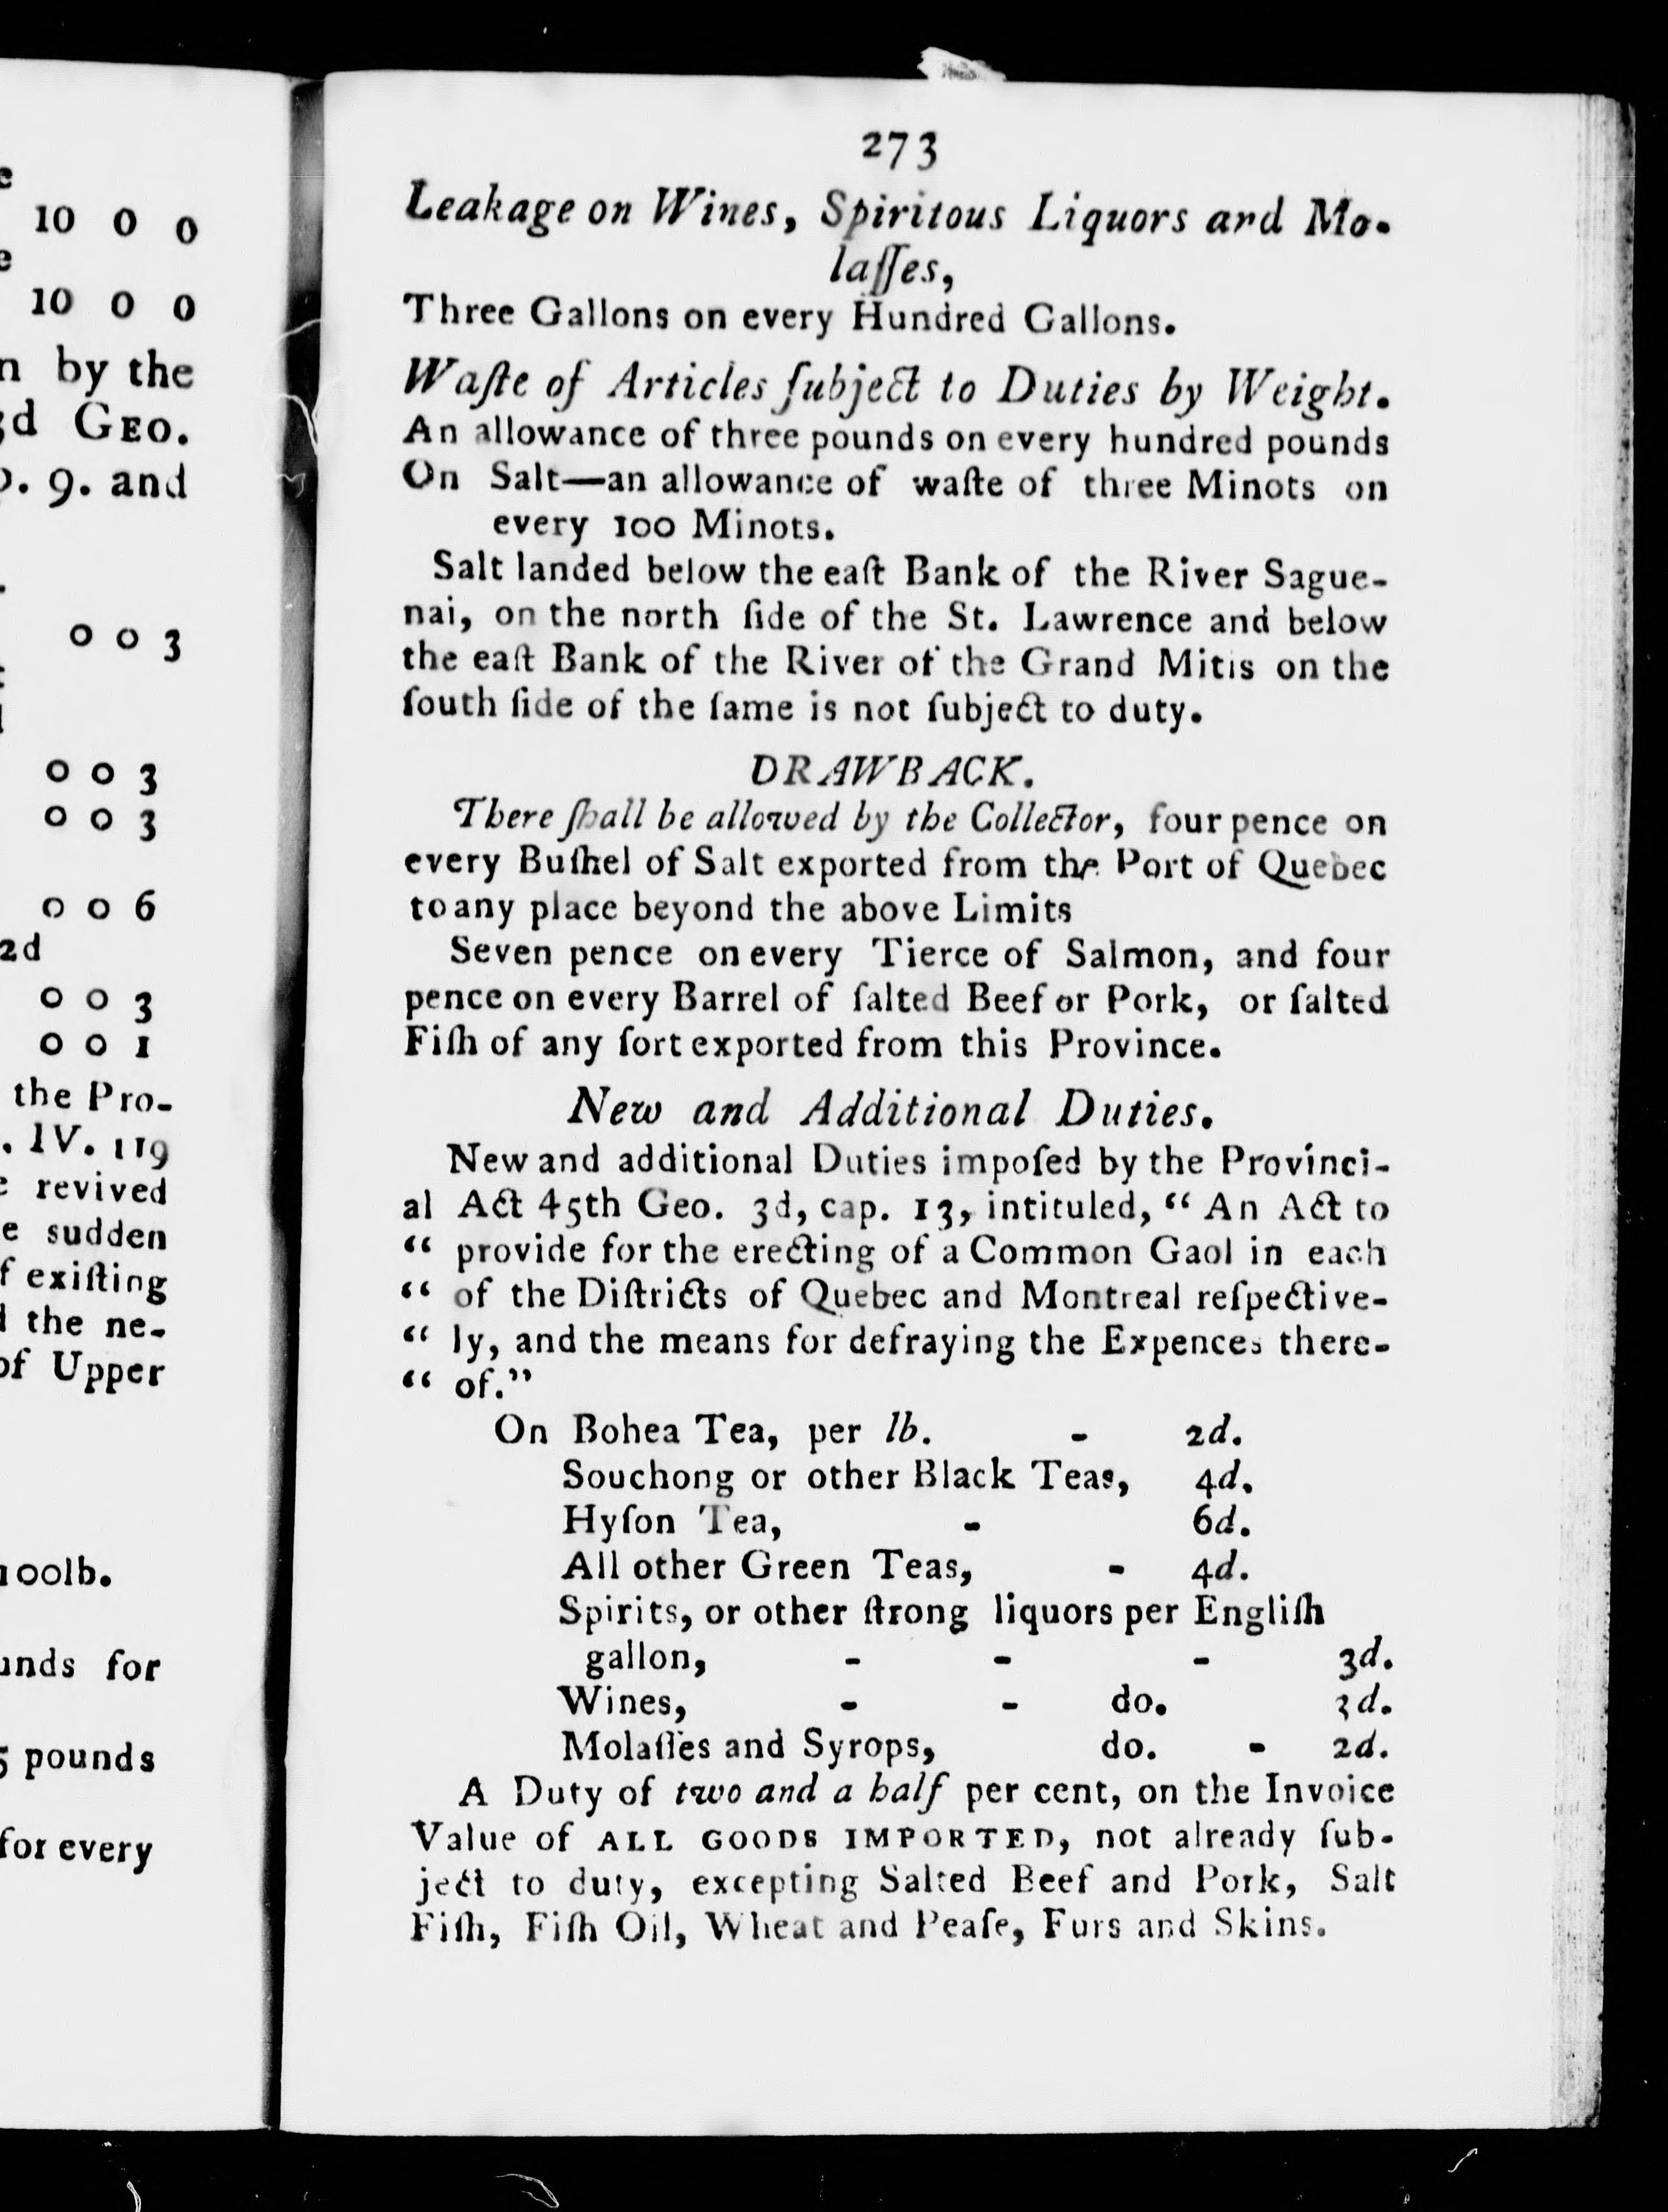 10 0 0
10 0 0
by the
GEO.
9. and
0 0 3
0 0 3
0 0 3
0 0 6
2d
0 0 3
0 0 1
the Pro-
IV. 119
revived
sudden
exiſting
the ne-
Upper
100lb.
for
pounds
for every
273
Leakage on Wines, Spiritous Liquors and Mo-
laſſes,
Three Gallons on every Hundred Gallons.
Waſte of Articles ſubject to Duties by Weight.
An allowance of three pounds on every hundred pounds
On Salt—an allowance of waſte of three Minots on
every 100 Minots.
Salt landed below the eaſt Bank of the River Sague-
nai, on the north ſide of the St. Lawrence and below
the eaſt Bank of the River of the Grand Mitis on the
ſouth ſide of the ſame is not ſubject to duty.
DRAWBACK.
There ſhall be allowed by the Collector, four pence on
every Buſhel of Salt exported from the Port of Quebec
to any place beyond the above Limits
Seven pence on every Tierce of Salmon, and four
pence on every Barrel of ſalted Beef or Pork, or ſalted
Fiſh of any ſort exported from this Province.
New and Additional Duties.
New and additional Duties impoſed by the Provinci-
al Act 45th Geo. 3d, cap. 13, intituled, “ An Act to
“ provide for the erecting of a Common Gaol in each
“ of the Diſtricts of Quebec and Montreal reſpective-
“ ly, and the means for defraying the Expences there-
“ of.”
On Bohea Tea, per lb. - 2d.
Souchong or other Black Teas, 4d.
Hyſon Tea, - 6d.
All other Green Teas, - 4d.
Spirits, or other ſtrong liquors per Engliſh
gallon, - - - 3d.
Wines, - - do. 3d.
Molaſſes and Syrops, do. - 2d.
A Duty of two and a half per cent, on the Invoice
Value of ALL GOODS IMPORTED, not already ſub-
ject to duty, excepting Salted Beef and Pork, Salt
Fiſh, Fiſh Oil, Wheat and Peaſe, Furs and Skins.